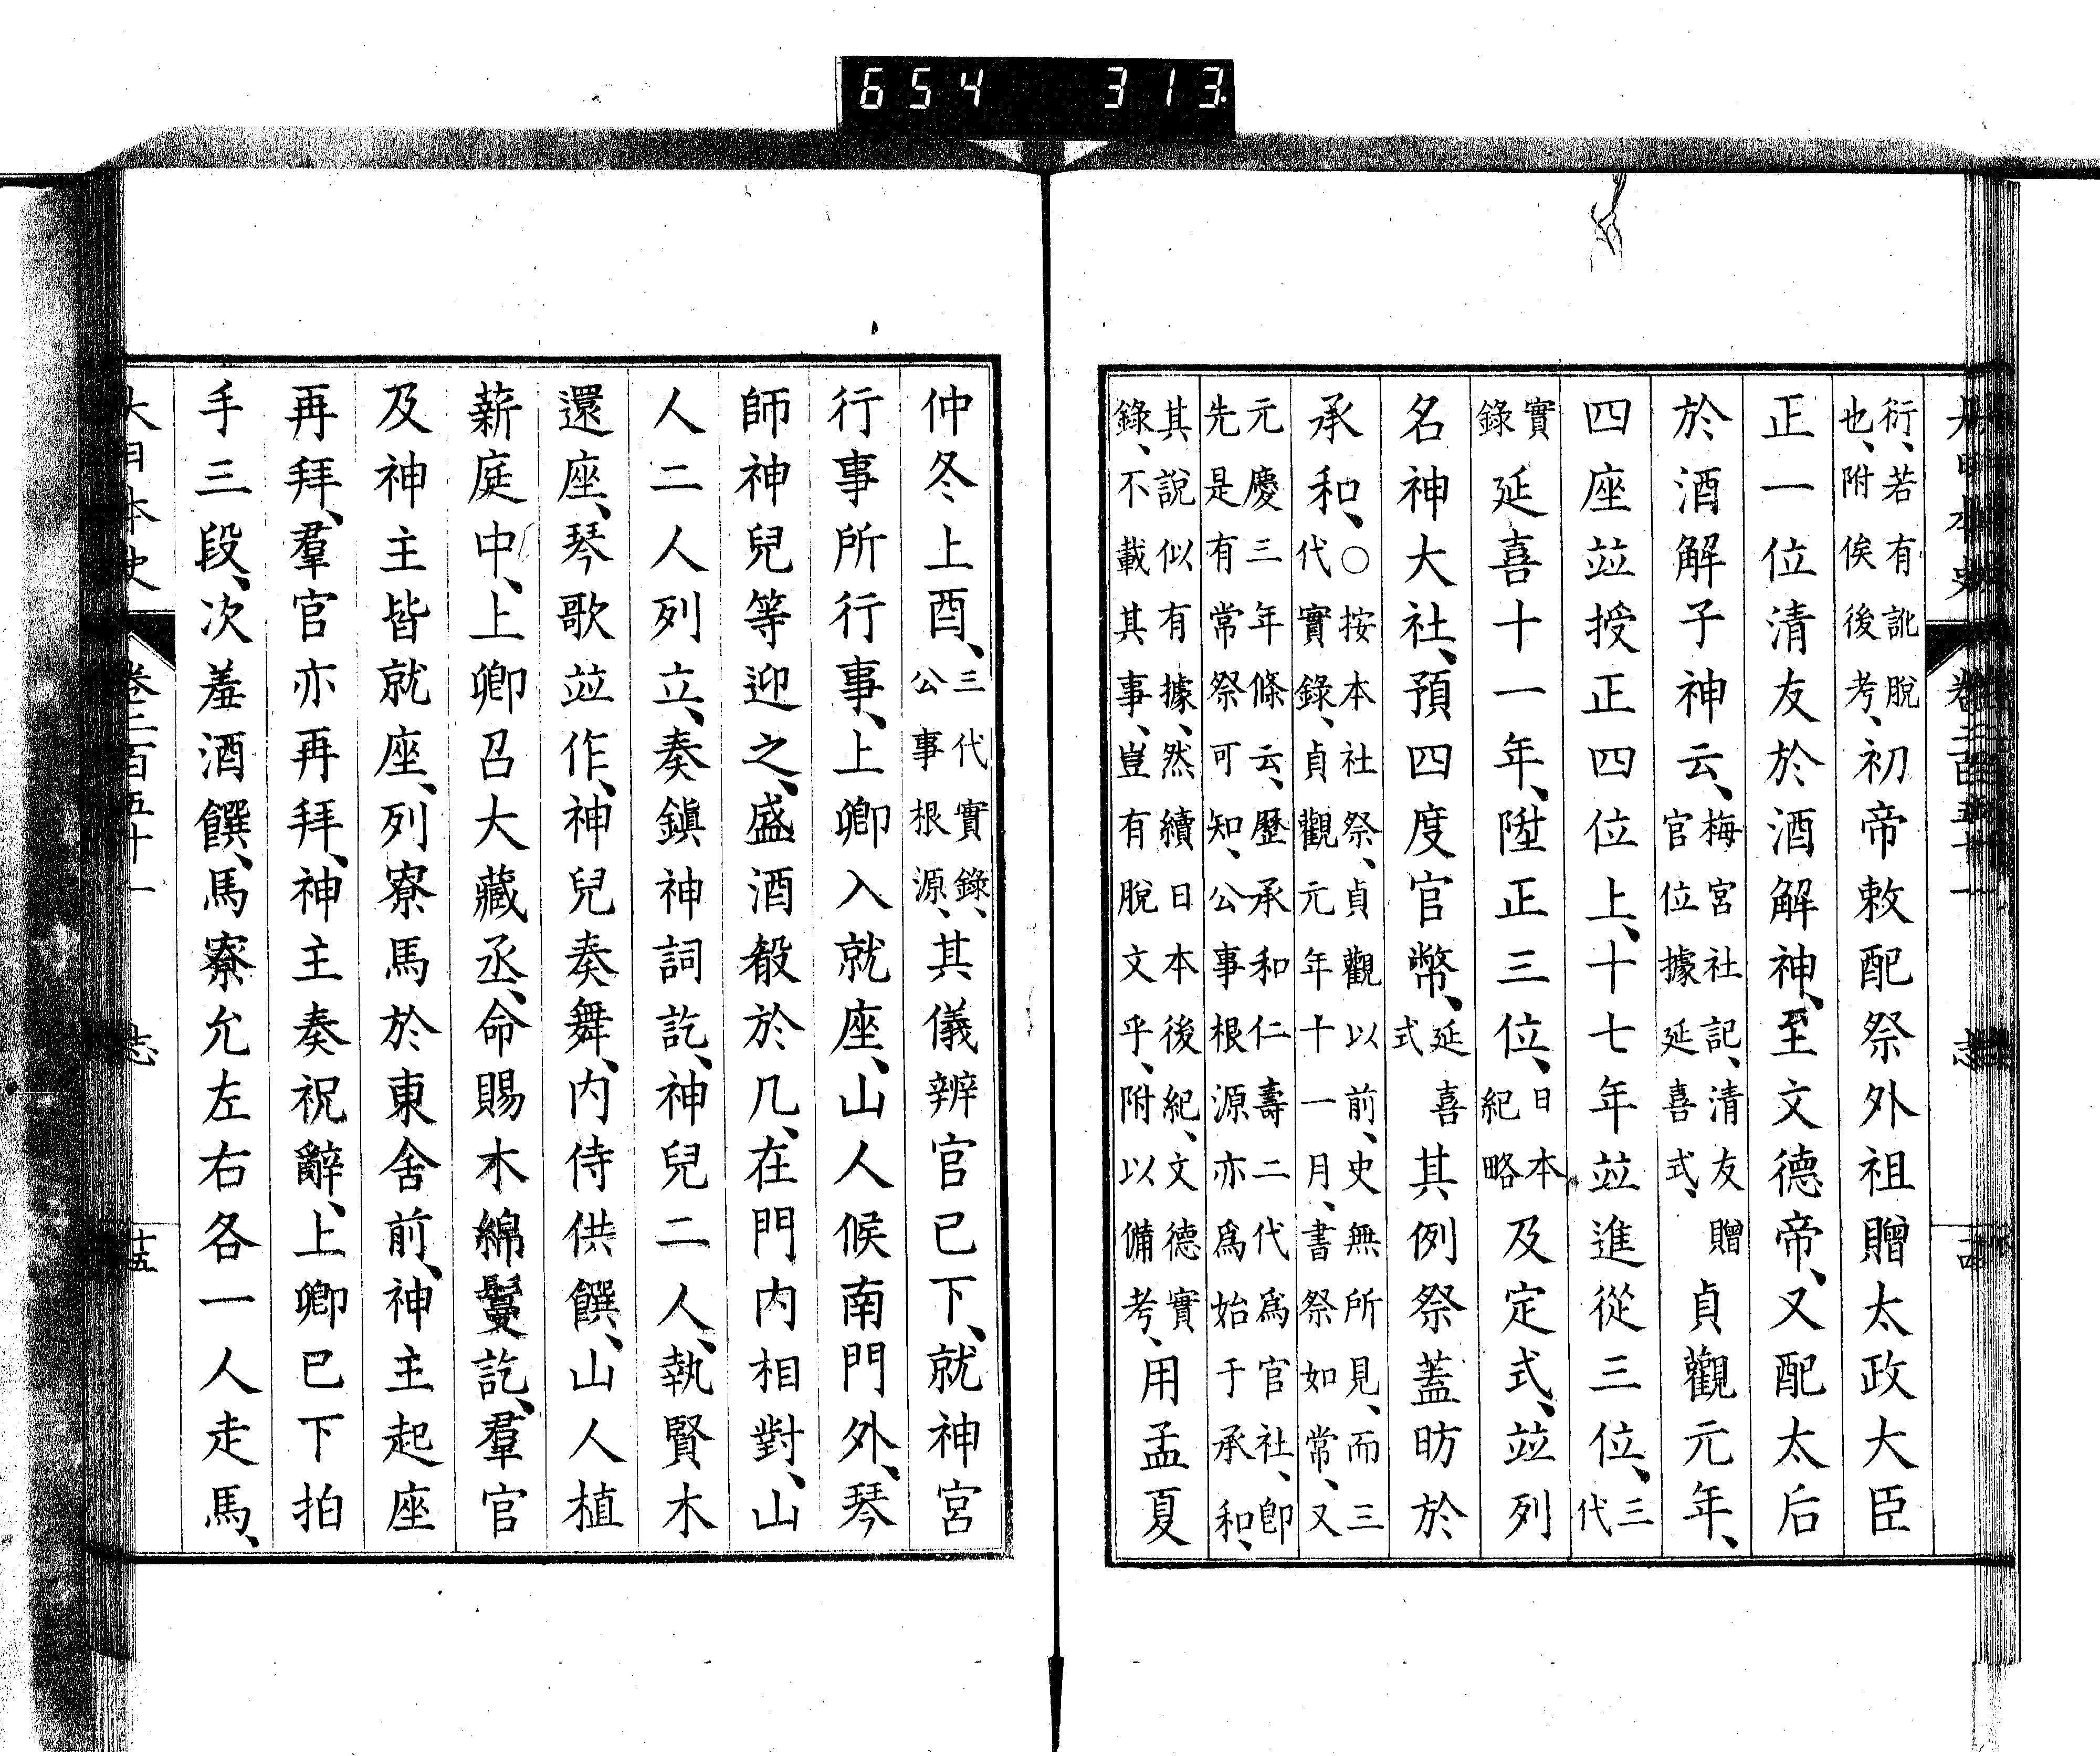 654 313
大日本史 卷二百五十一 志 十四
衍、若有訛脫
也、附俟後考、初帝敕配祭外祖贈太政大臣
正一位清友於酒解神、至文德帝、又配太后
於酒解子神云、梅宮社記、清友贈
官位據延喜式、貞觀元年、
四座竝授正四位上、十七年竝進從三位、三
代
實
錄延喜十一年、陞正三位、日本
紀略及定式、竝列
名神大社、預四度官幣、延喜
式其例祭蓋昉於
承和、○按本社祭、貞觀以前、史無所見、而三
代實錄、貞觀元年十一月、書祭如常、又
元慶三年條云、歷承和仁壽二代爲官社、卽
先是有常祭可知、公事根源亦爲始于承和、
其說似有據、然續日本後紀、文德實
錄、不載其事、豈有脫文乎、附以備考、用孟夏
仲冬上酉、三代實錄、
公事根源、其儀辨官已下、就神宮
行事所行事、上卿入就座、山人候南門外、琴
師神兒等迎之、盛酒殽於几、在門内相對、山
人二人列立、奏鎭神詞訖、神兒二人、執賢木
還座、琴歌竝作、神兒奏舞、内侍供饌、山人植
薪庭中、上卿召大藏丞、命賜木綿鬘訖、羣官
及神主皆就座、列寮馬於東舍前、神主起座
再拜、羣官亦再拜、神主奏祝辭、上卿已下拍
手三段、次羞酒饌、馬寮允左右各一人走馬、
大日本史 卷二百五十一 志 十五